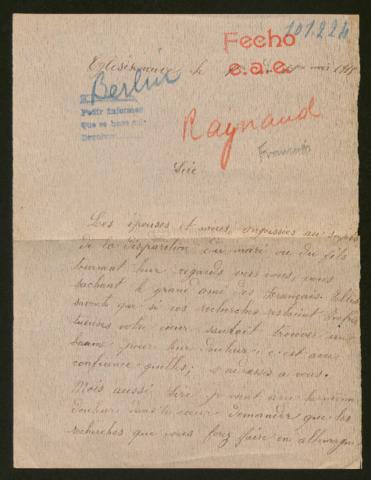 101.224
Fecho
e.a.e.
le mai
Berlin
Pedir informes
Que se hace
Raynaud
Francés
Sire
Les épouses et mères, angoissées au sujet
de la disparition d'un mari ou du fils
tournent leur regards vers vous, vous
sachant le grand ami des Français. Elles
savent que si vos recherches restaient
votre cœur saurait trouver un
baume pour leur douleur; c'est avec
confiance qu'elles s'adresses a vous.
Mois aussi, Sire je vient avec
douleur dans le cœur demander que les
recherches que vous ferez faire en allemagne,